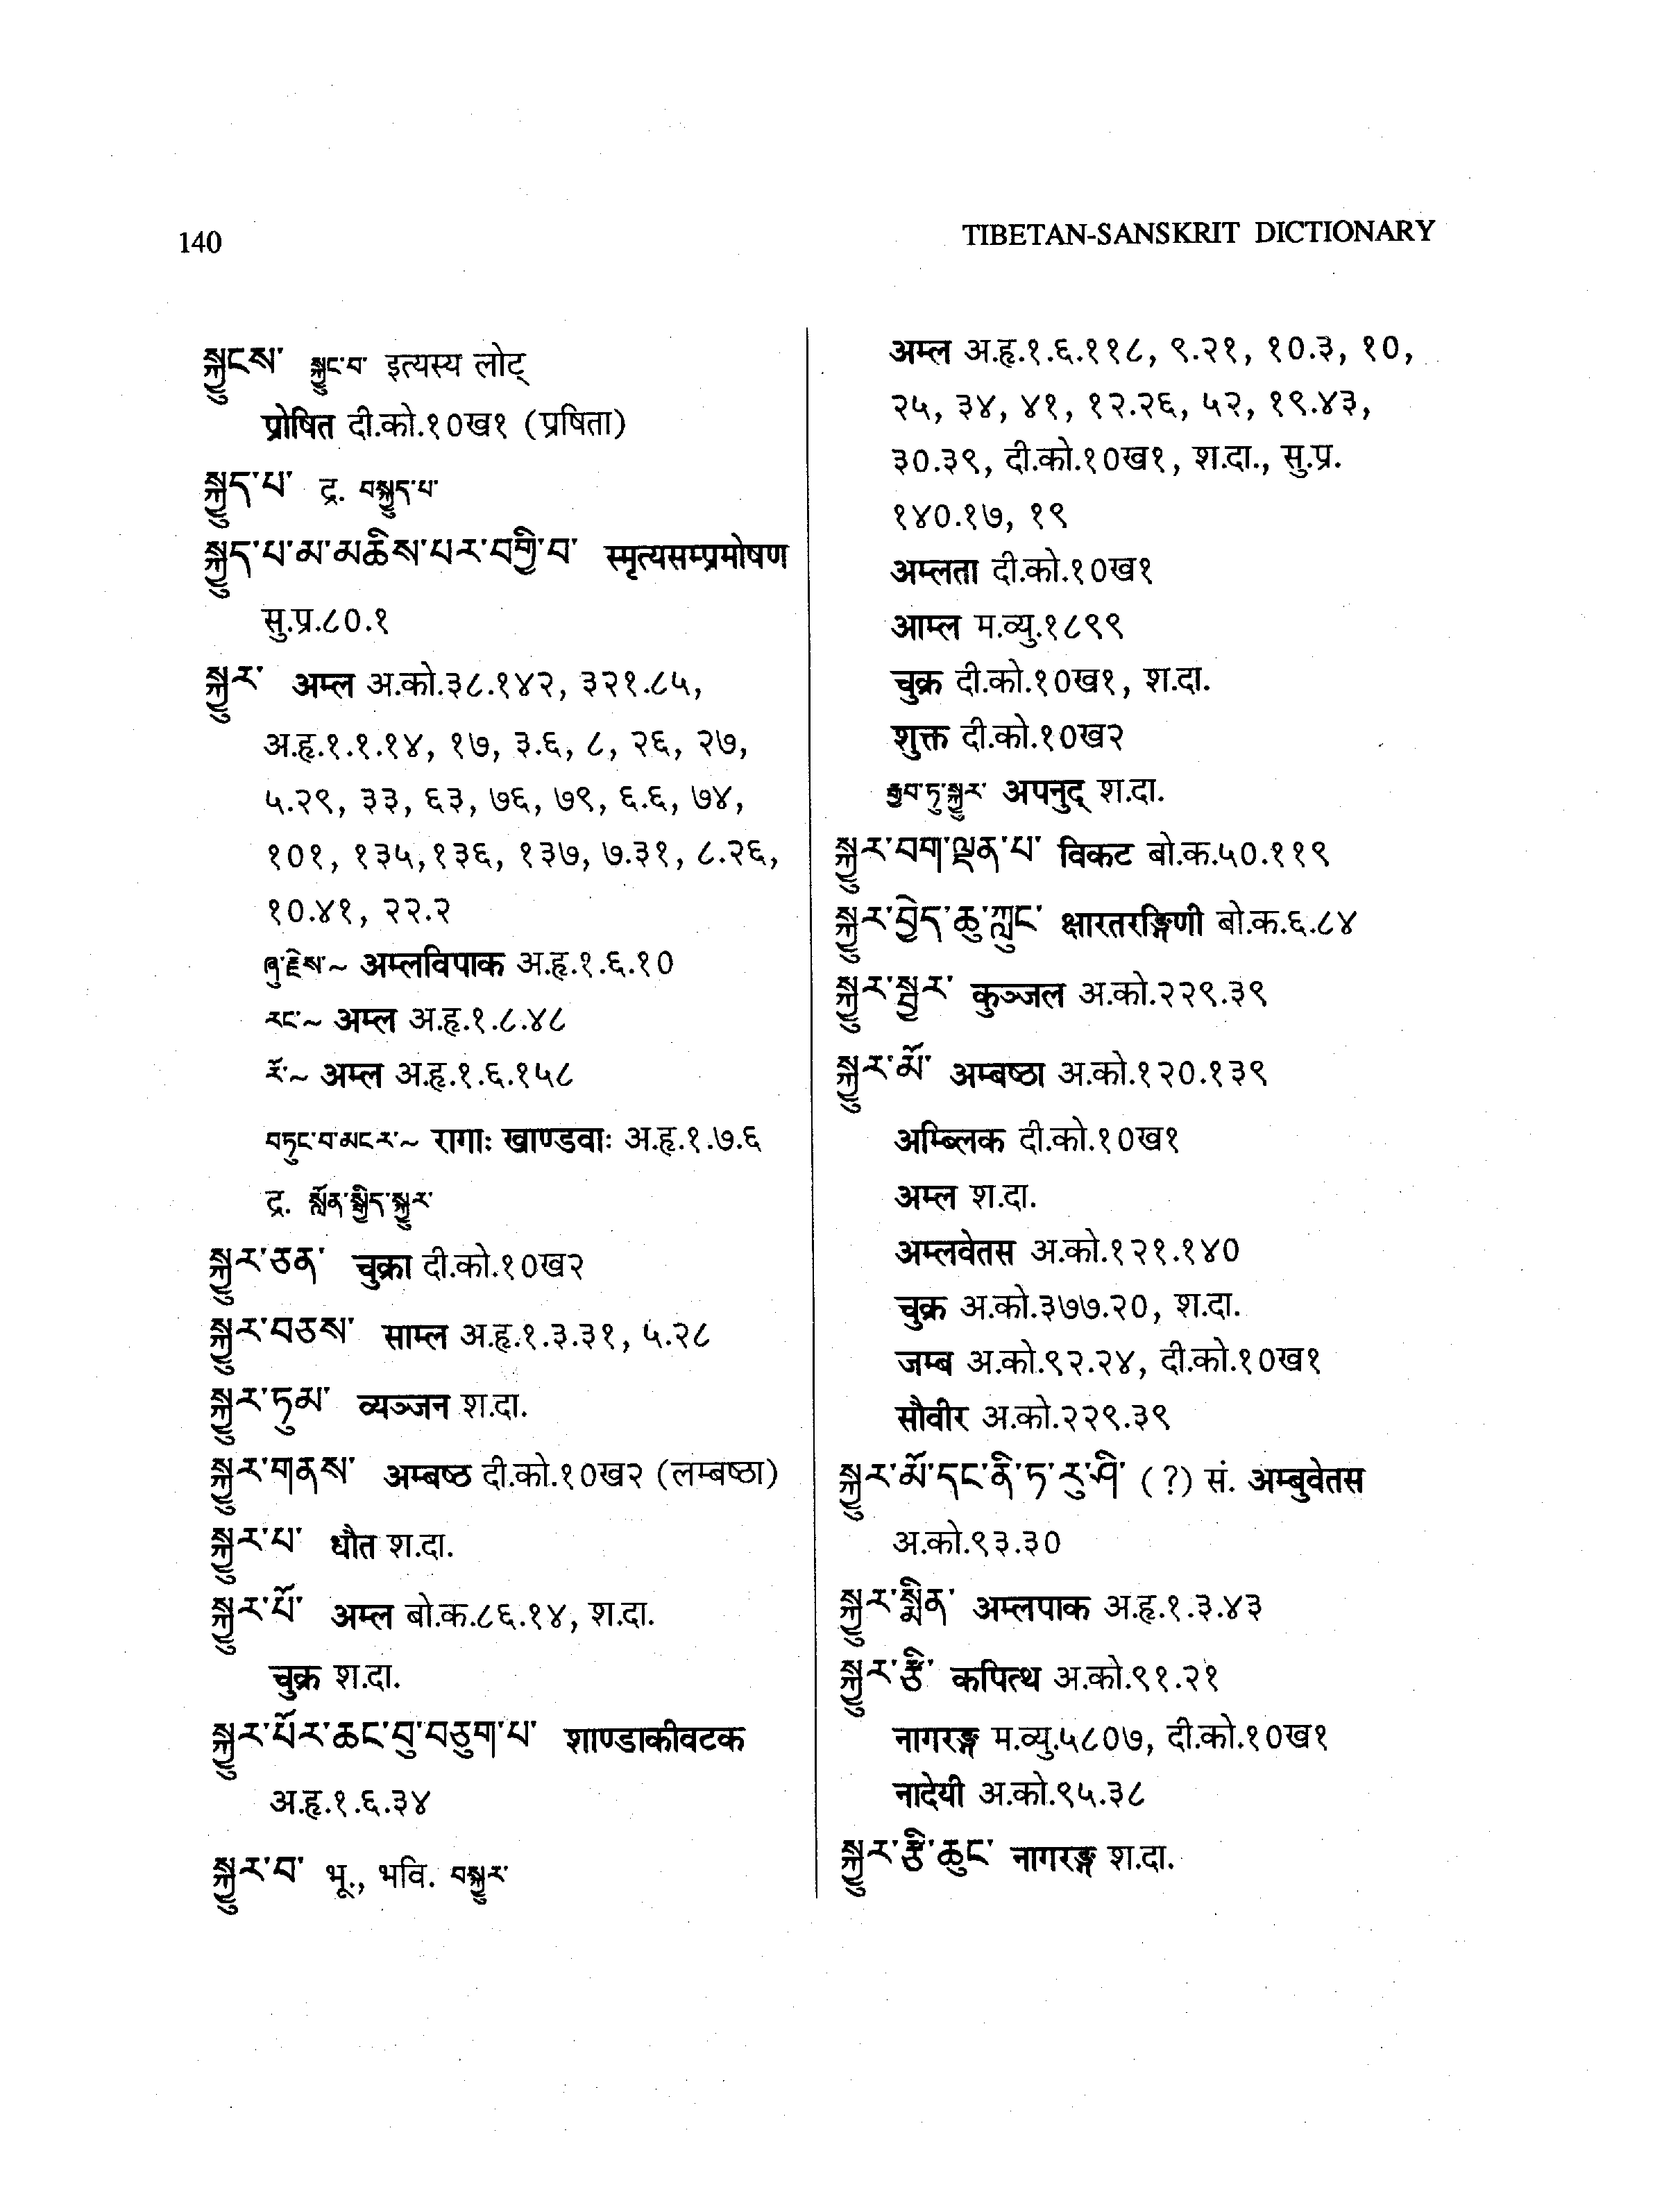 140
TIBETAN-SANSKRIT DICTIONARY
སྐྱུངས་ སྐྱུང་བ་ इत्यस्य लोट्
प्रोषित दी.को.१०ख१ (प्रषिता)
སྐྱུད་པ་ द्र. བསྐྱུད་པ་
སྐྱུད་པ་མ་མཆིས་པར་བགྱི་བ་ स्मृत्यसम्प्रमोषण
सु.प्र.८०.१
སྐྱུར་ अम्ल अ.को.३८.१४२, ३२१.८५,
अ.हृ.१.१.१४, १७, ३.६, ८, २६, २७,
५.२९, ३३, ६३, ७६, ७९, ६.६, ७४,
१०१, १३५,१३६, १३७, ७.३१, ८.२६,
१०.४१, २२.२
ཞུ་རྗེས་~ अम्लविपाक अ.हृ.१.६.१०
རང་~ अम्ल अ.हृ.१.८.४८
རོ་~ अम्ल अ.हृ.१.६.१५८
བཏུང་བ་མངར་~ रागाः खाण्डवाः अ.हृ.१.७.६
द्र. སློན་སྒྱིད་སྐྱུར་
སྐྱུར་ཅན་ चुक्रा दी.को.१०ख२
སྐྱུར་བཅས་ साम्ल अ.हृ.१.३.३१, ५.२८
སྐྱུར་ཏུམ་ व्यञ्जन श.दा.
སྐྱུར་གནས་ अम्बष्ठ दी.को.१०ख२ (लम्बष्ठा)
སྐྱུར་པ་ धौत श.दा.
སྐྱུར་པོ་ अम्ल बो.क.८६.१४, श.दा.
चुक्र श.दा.
སྐྱུར་པོར་ཆང་བུ་བཅུག་པ་ शाण्डाकीवटक
अ.हृ.१.६.३४
སྐྱུར་བ་ भू., भवि. བསྐྱུར་
अम्ल अ.हृ.१.६.११८, ९.२१, १०.३, १०,
२५, ३४, ४१, १२.२६, ५२, १९.४३,
३०.३९, दी.को.१०ख१, श.दा., सु.प्र.
१४०.१७, १९
अम्लता दी.को.१०ख१
आम्ल म.व्यु.१८९९
चुक्र दी.को.१०ख१, श.दा.
शुक्त दी.को.१०ख२
རྒྱབ་ཏུ་སྐྱུར་ अपनुद् श.दा.
སྐྱུར་བག་ལྡན་པ་ विकट बो.क.५०.११९
སྐྱུར་བྱེད་ཆུ་ཀླུང་ क्षारतरङ्गिणी बो.क.६.८४
སྐྱུར་སྦྱར་ कुञ्जल अ.को.२२९.३९
སྐྱུར་མོ་ अम्बष्ठा अ.को.१२०.१३९
अम्ब्लिक दी.को.१०ख१
अम्ल श.दा.
अम्लवेतस अ.को.१२१.१४०
चुक्र अ.को.३७७.२०, श.दा.
जम्ब अ.को.९२.२४, दी.को.१०ख१
सौवीर अ.को.२२९.३९
སྐྱུར་མོ་དང་ནི་ཏ་རུ་ཤི་ (?) सं. अम्बुवेतस
अ.को.९३.३०
སྐྱུར་སྨིན་ अम्लपाक अ.हृ.१.३.४३
སྐྱུར་རྩི་ कपित्थ अ.को.९१.२१
नागरङ्ग म.व्यु.५८०७, दी.को.१०ख१
नादेयी अ.को.९५.३८
སྐྱུར་རྩི་ཆུང་ नागरङ्ग श.दा.